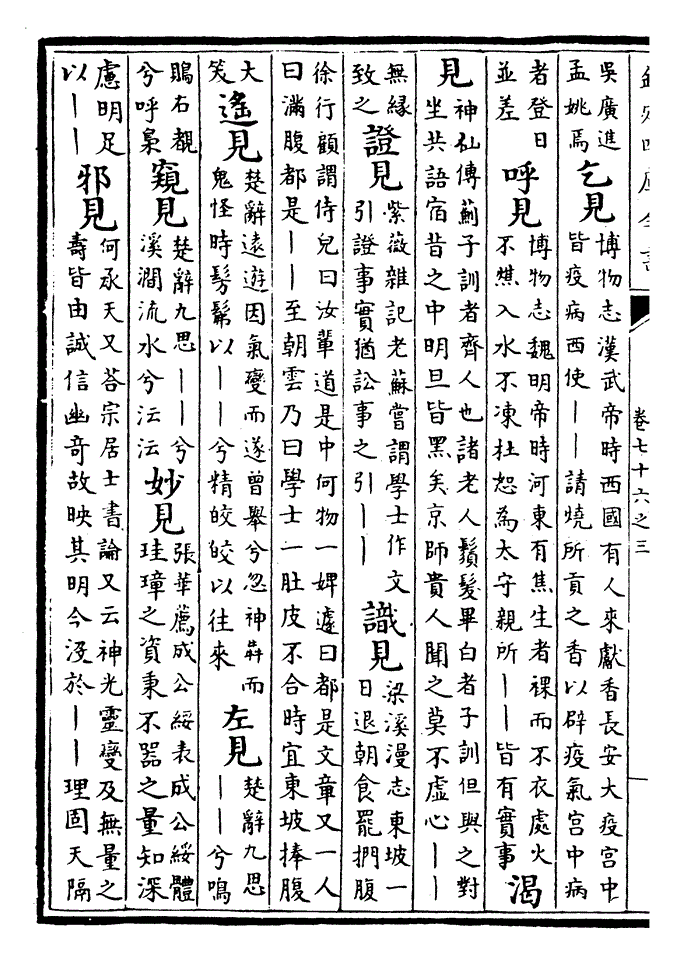 欽定四庫全書
卷七十六之三
吳廣進
孟姚焉
乞見
博物志漢武帝時西國有人來獻香長安大疫宮中
皆疫病西使——請燒所貢之香以辟疫氣宮中病
者登日
並差
呼見
博物志魏明帝時河東有焦生者裸而不衣處火
不燋入水不凍杜恕為太守親所——皆有實事
渴
見
神仙傳薊子訓者齊人也諸老人鬚髮畢白者子訓但與之對
坐共語宿昔之中明旦皆黑矣京師貴人聞之莫不虛心——
無緣
致之
證見
紫薇雜記老蘇嘗謂學士作文
引證事實猶訟事之引——
識見
梁溪漫志東坡一
日退朝食罷捫腹
徐行顧謂侍兒曰汝輩道是中何物一婢遽曰都是文章又一人
曰滿腹都是——至朝雲乃曰學士一肚皮不合時宜東坡捧腹
大
笑
遙見
楚辭遠遊因氣變而遂曾舉兮忽神犇而
鬼怪時髣髴以——兮精皎皎以往來
左見
楚辭九思
——兮鳴
鵙右覩
兮呼梟
窺見
楚辭九思——兮
溪澗流水兮沄沄
妙見
張華薦成公綏表成公綏體
珪璋之資秉不器之量知深
慮明足
以——
邪見
何承天又答宗居士書論又云神光靈變及無量之
壽皆由誠信幽奇故映其明今沒於——理固天隔